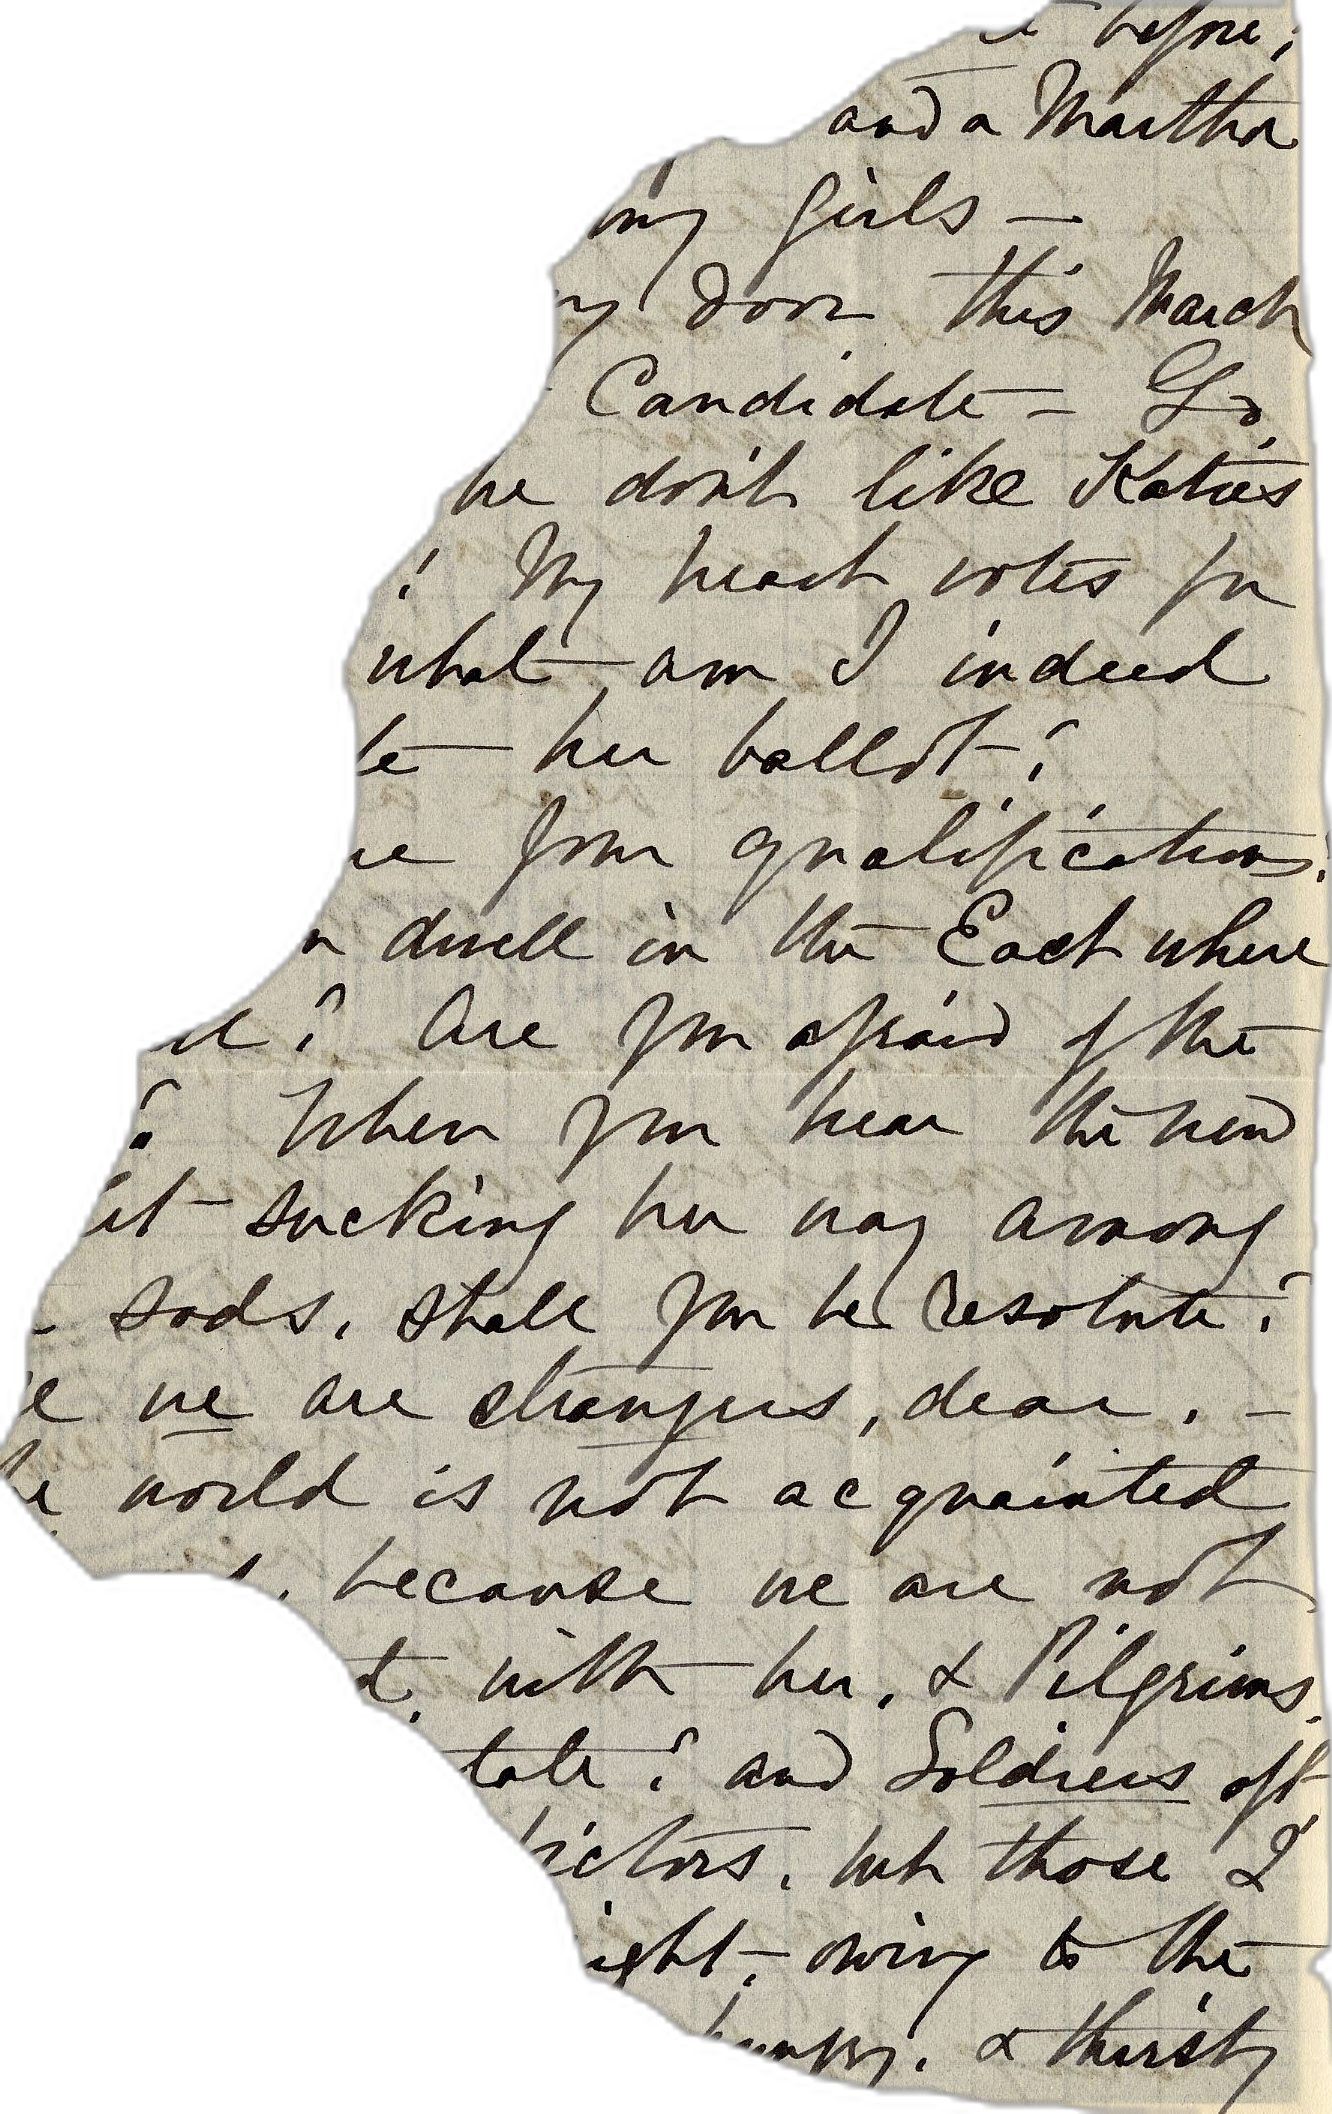 before,
and a Martha
girls —
door this March
Candidate — Go
he don't like Katie's
? My heart votes for
what am I indeed
her ballot?
your qualifications?
dwell in the East where
? Are you afraid of the
? When you hear the new
sucking her way among
sods, shall you be resolute?
we are strangers, dear, —
world is not acquainted
because we are not
with her, & Pilgrims,
and Soldiers oft
but those I
owing to the
hungry, & thirsty